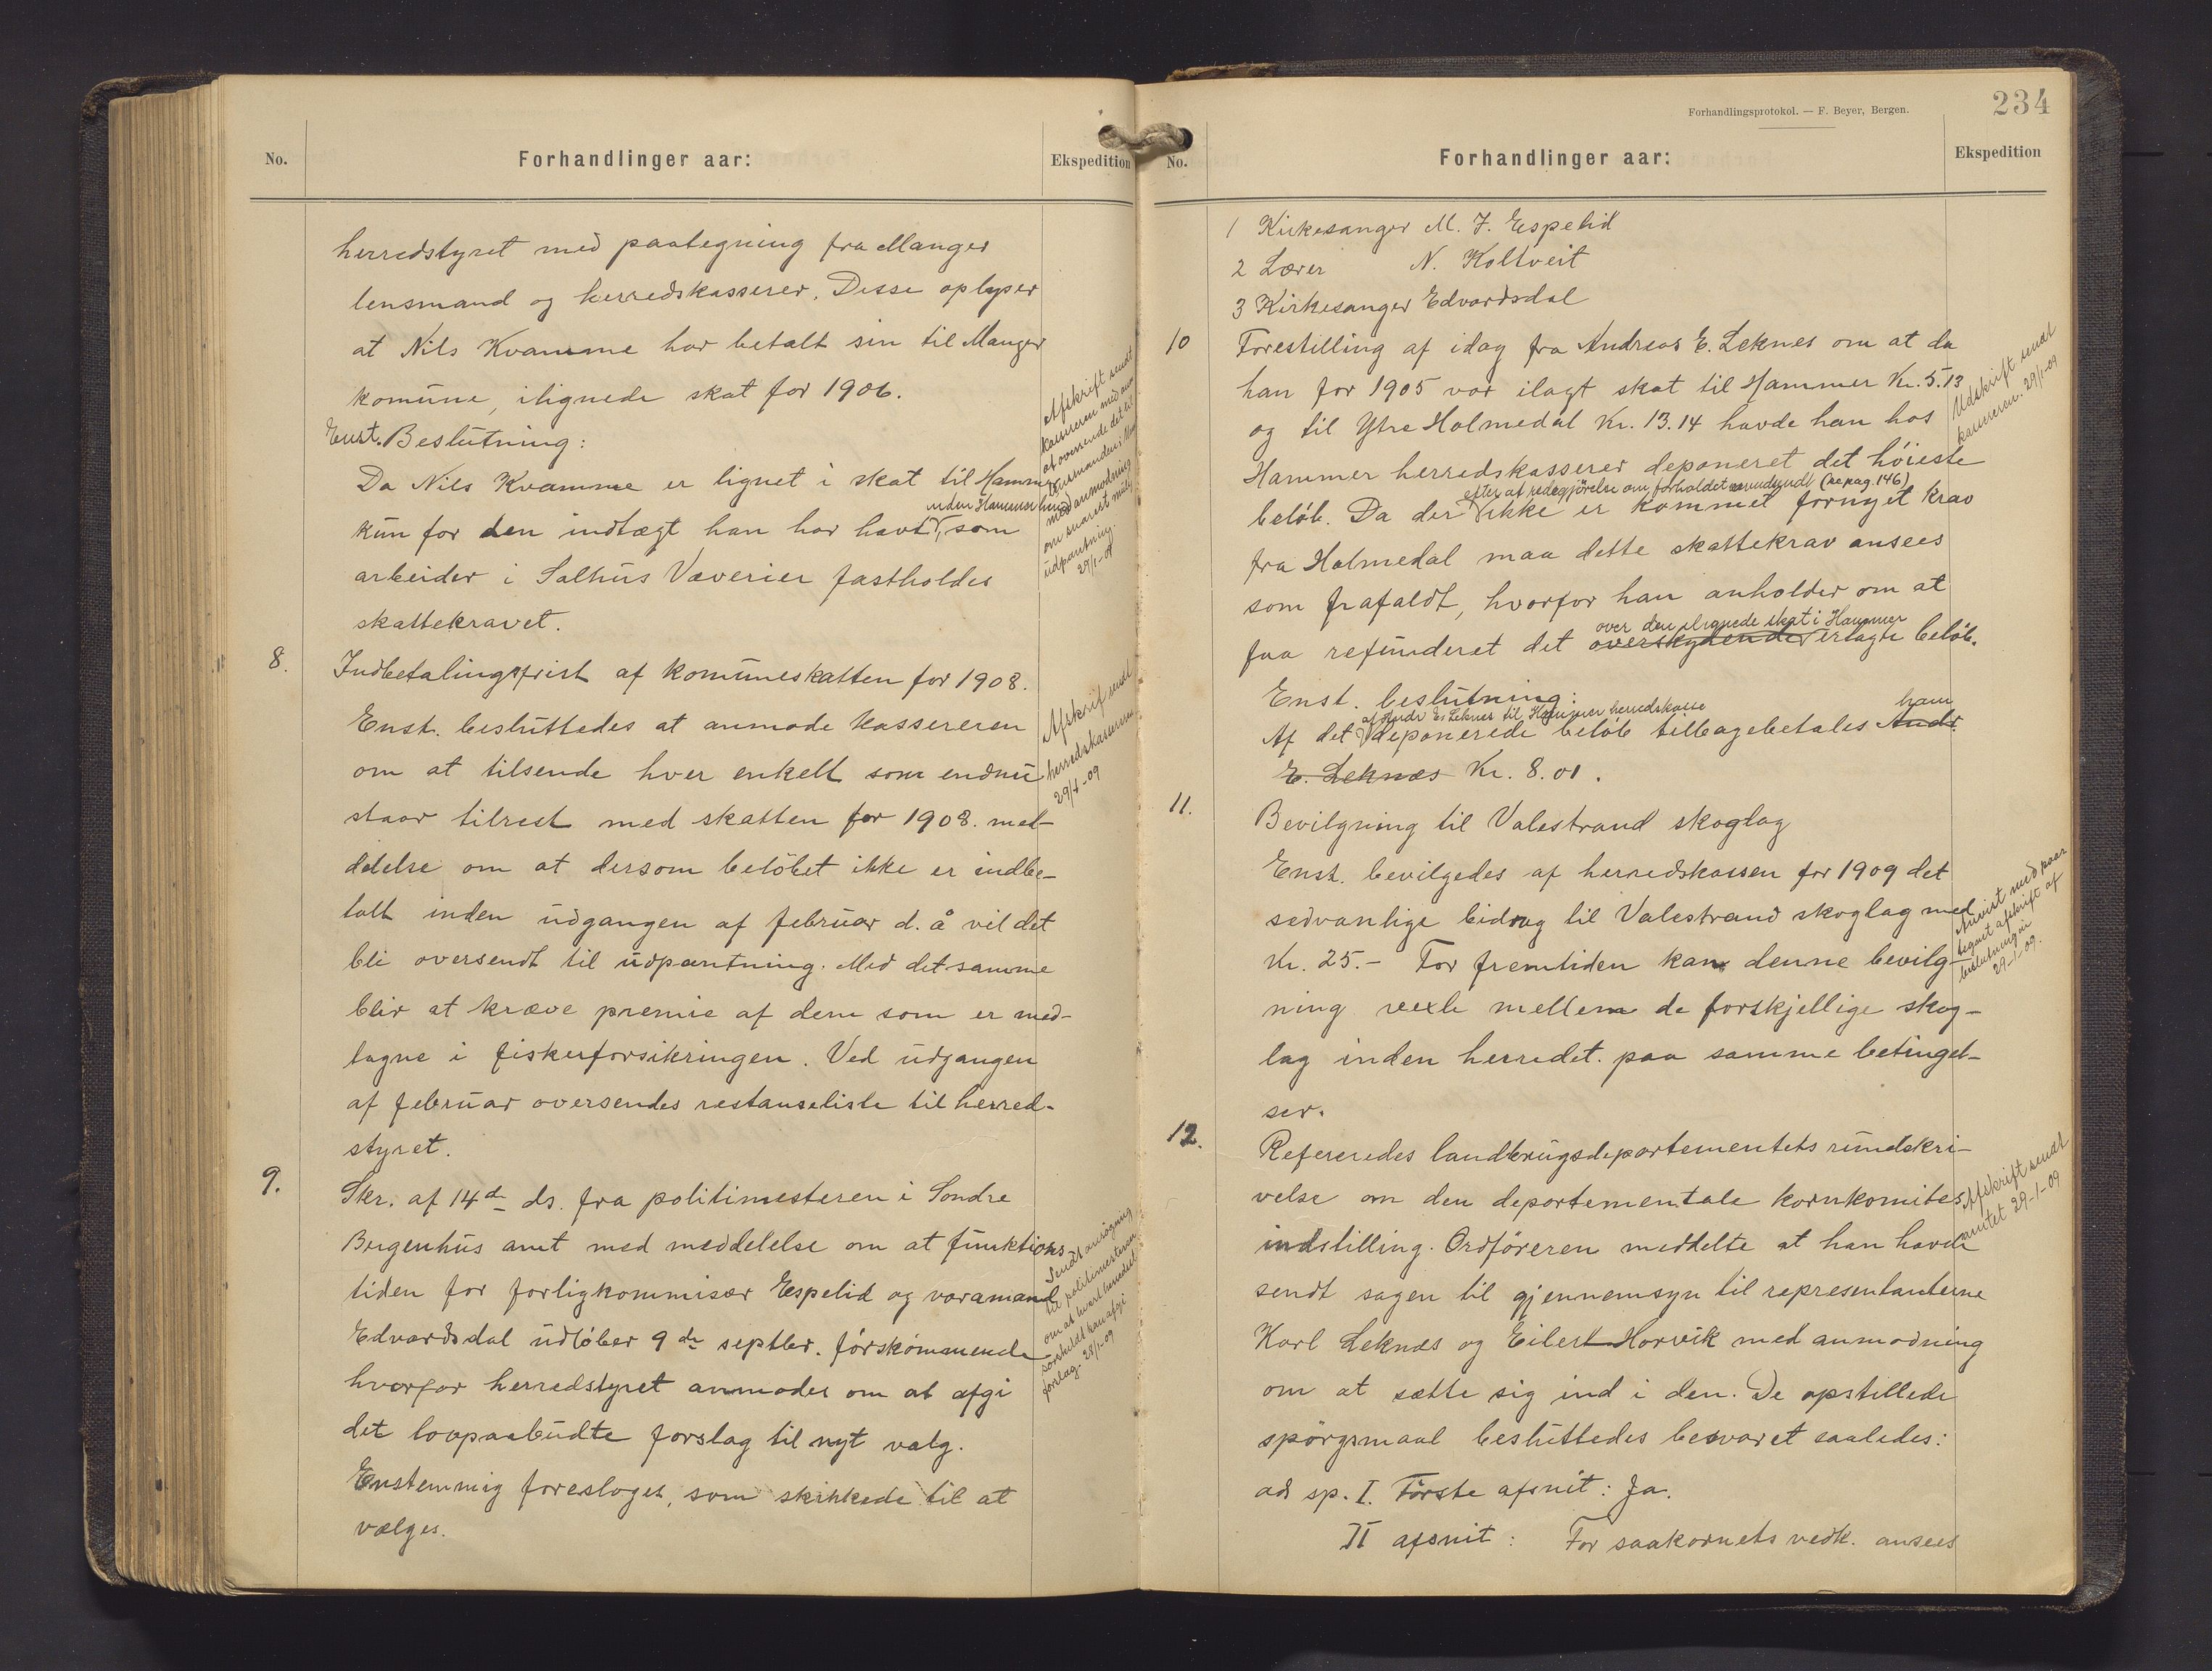 No.
Forhandlinger aar:
Ekspedition
herredstyret med paategning fra Manger
lensmand og herredskasserer. Disse oplyser
at Nils Kvamme har betalt sin til Manger
komune, ilignede skat for 1906.
Enst. Beslutning:
Da Nils Kvamme er lignet i skat til Hammer
inden Hammer herred
kun for den indtægt han har havt, som
arbeider i Salhus Væverier fastholdes
skattekravet.
Afskrift sendt
kasseren med anm
at oversende det til
lensmanden i Man
med anmodning
om snarest mulig
udpantning.
29/1-09
8.
Indbetalingsfrist af komuneskatten for 1908.
Enst. besluttedes at anmode kassereren
om at tilsende hver enkelt som endnu
staar tilrest med skatten for 1908. med-
delelse om at dersom beløbet ikke er indbe-
talt inden udgangen af februar d. å vil det
bli oversendt til udpantning. Med det samme
blir at kræve premie af dem som er med-
tagne i fiskerforsikringen. Ved udgangen
af februar oversendes restanseliste til herred-
styret.
Afskrif sendt
herredskassereren
29/1-09
9.
Skr. af 14de ds. fra politimesteren i Søndre
Bergenhus amt med meddelelse om at funktions
tiden for forligkommisær Espelid og varamand
Edvardsdal udløber 9de septbr. førskommende
hvorfor herredstyret anmodes om at afgi
det lovpaabudte forslag til nyt valg.
Enstemmig foresloges, som skikkede til at
vælges.
Sendt ansøgning
til politimesteren
om at hvert herred
særskildt kan afgi
forslag. 28/1-09
Forhandlingsprotokol. — F. Beyer, Bergen.
234
No.
Forhandlinger aar:
Ekspedition
1 Kirkesanger M. J. Espelid
2 Lærer N. Koltveit
3 Kirkesanger Edvardsdal
10
Forestilling af idag fra Andreas E. Leknes om at da
han for 1905 var ilagt skat til Hammer Kr. 5.13
og til Ytre Holmedal Kr. 13.14 havde han hos
Hammer herredskasserer deponeret det høieste
efter at redegjørelse om forholdet er indsendt (se pag. 146)
beløb. Da der ikke er kommet fornyet krav
fra Holmedal maa dette skattekrav ansees
som frafaldt, hvorfor han anholder om at
over den ilignede skat i Hammer
faa refunderet det overskydende erlagte beløb.
Udskrift sendt
kasseren. 29/1-09
Enst. beslutning:
af Andr E. Leknes til Hammer herredskasse
ham
Af det deponerede beløb tilbagebetales Andr.
E. Leknæs Kr. 8.01.
11.
Bevilgning til Valestrand skoglag
Enst. bevilgedes af herredskassen for 1909 det
sedvanlige bidrag til Valestrand skoglag med
Kr. 25.- For fremtiden kan denne bevilg-
ning vexle mellem de forskjellige skog-
lag inden herredet paa samme betingel-
ser.
Anvist med paa
tegnet afskrift af
beslutningen
29-1-09.
12.
Refereredes landbrugsdepartementets rundskri-
velse om den departementale kornkomites
indstilling. Ordføreren meddelte at han havde
sendt sagen til gjennemsyn til representanterne
Karl Leknæs og Eilert Horvik med anmodning
om at sætte sig ind i den. De opstillede
spørgsmaal besluttedes besvaret saaledes:
ad sp. I. Første afsnit: Ja.
II afsnit: For saakornets vedk. ansees
Afskrift sendt
amtet 29-1-09